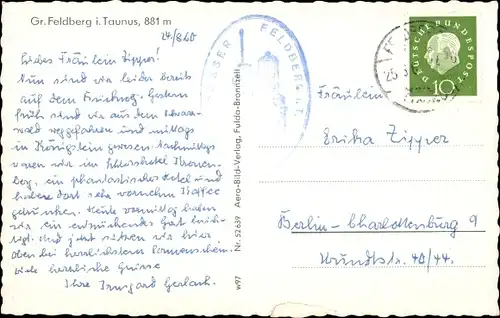 Gr. Feldberg i. Taunus, 881 m
24/8 60
Liebes Fräulein Zipper!
Nun sind wir leider bereits
auf dem Rückweg. Gestern
früh sind wir aus dem Schwarz-
wald weggefahren und mittags
in Königstein gewesen. Nachmittags
waren wir im Schlosshotel Kronen-
berg, ein phantastisches Hotel und
haben dort sehr vornehm Kaffee
getrunken. Heute vormittag haben
wir ein entzückendes Gut besich-
tigt. Und jetzt sitzen wir hier
oben bei herrlichstem Sonnenschein.
Viele herzliche Grüsse
Ihre Irmgard Gerlach.
GROSSER FELDBERG I. T.
Nr. 52639 Aero-Bild-Verlag, Fulda-Bronnzell
w97
DEUTSCHE BUNDESPOST
10
Fräulein
Erika Zipper
Berlin-Charlottenburg 9
Wundtstr. 40/44.